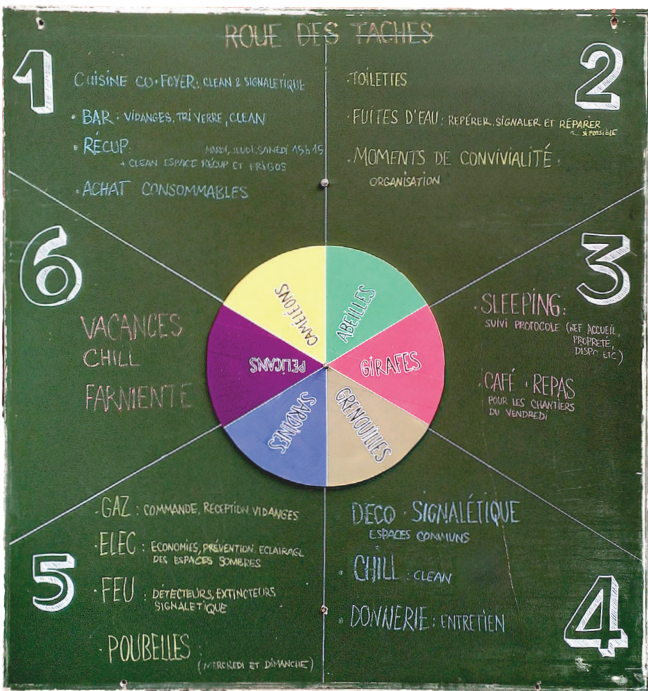 ROUE DES TACHES
1
CUISINE CO + FOYER : CLEAN & SIGNALETIQUE
• BAR : VIDANGES, TRI VERRE, CLEAN
• RÉCUP MARDI, JEUDI, SAMEDI 15h15
+ CLEAN ESPACE RÉCUP ET FRIGOS
• ACHAT CONSOMMABLES
2
• TOILETTES
• FUITES D'EAU : REPÉRER, SIGNALER ET RÉPARER
SI POSSIBLE
• MOMENTS DE CONVIVIALITÉ :
ORGANISATION
3
• SLEEPING :
SUIVI PROTOCOLE (REF ACCUEIL,
PROPRETÉ,
DISPO, ETC)
• CAFÉ + REPAS
POUR LES CHANTIERS
DU VENDREDI
4
DECO • SIGNALÉTIQUE
ESPACES COMMUNS
• CHILL : CLEAN
• DONNERIE : ENTRETIEN
5
• GAZ : COMMANDE, RECEPTION VIDANGES
• ELEC : ECONOMIES, PRÉVENTION, ECLAIRAGE
DES ESPACES SOMBRES
• FEU : DÉTECTEURS, EXTINCTEURS
SIGNALETIQUE
• POUBELLES :
(MERCREDI ET DIMANCHE)
6
VACANCES
CHILL
FARNIENTE
CAMÉLÉONS
ABEILLES
GIRAFES
GRENOUILLES
SARDINES
PELICANS